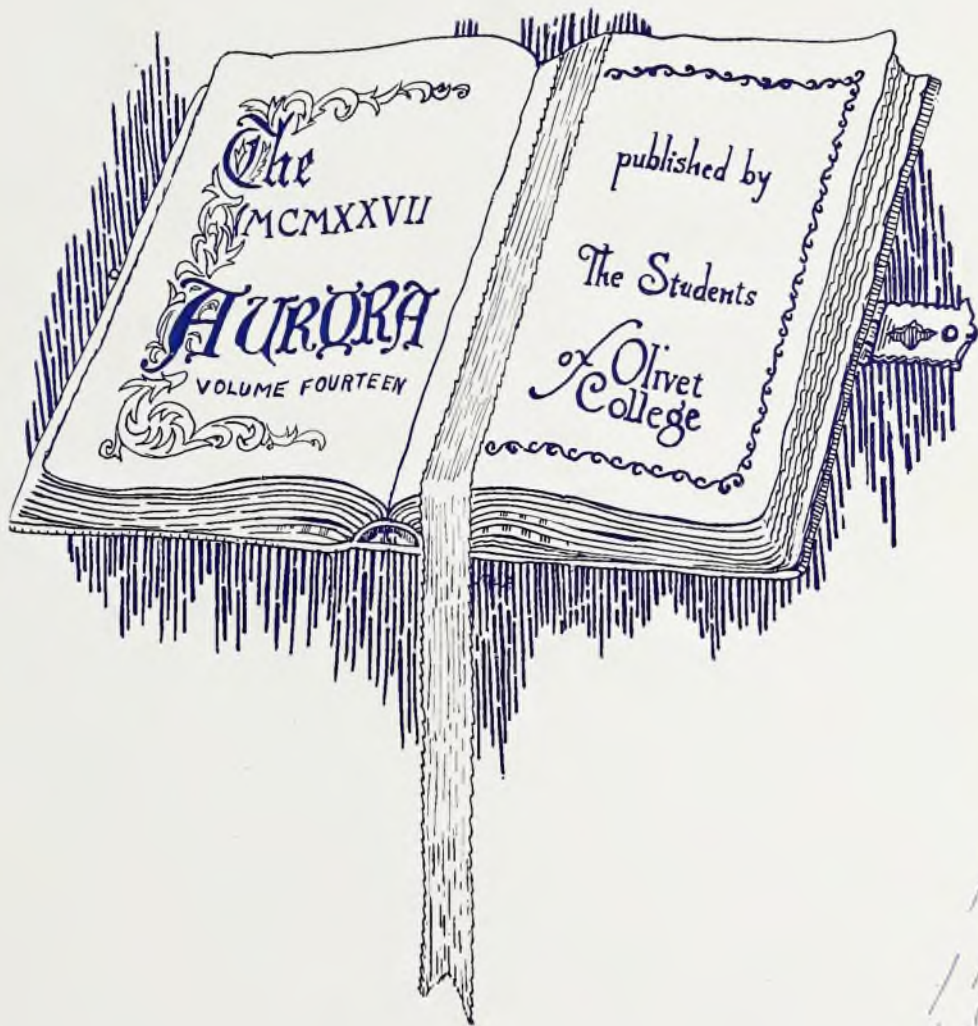 The
MCMXXVII
AURORA
VOLUME FOURTEEN
published by
The Students
of Olivet
College